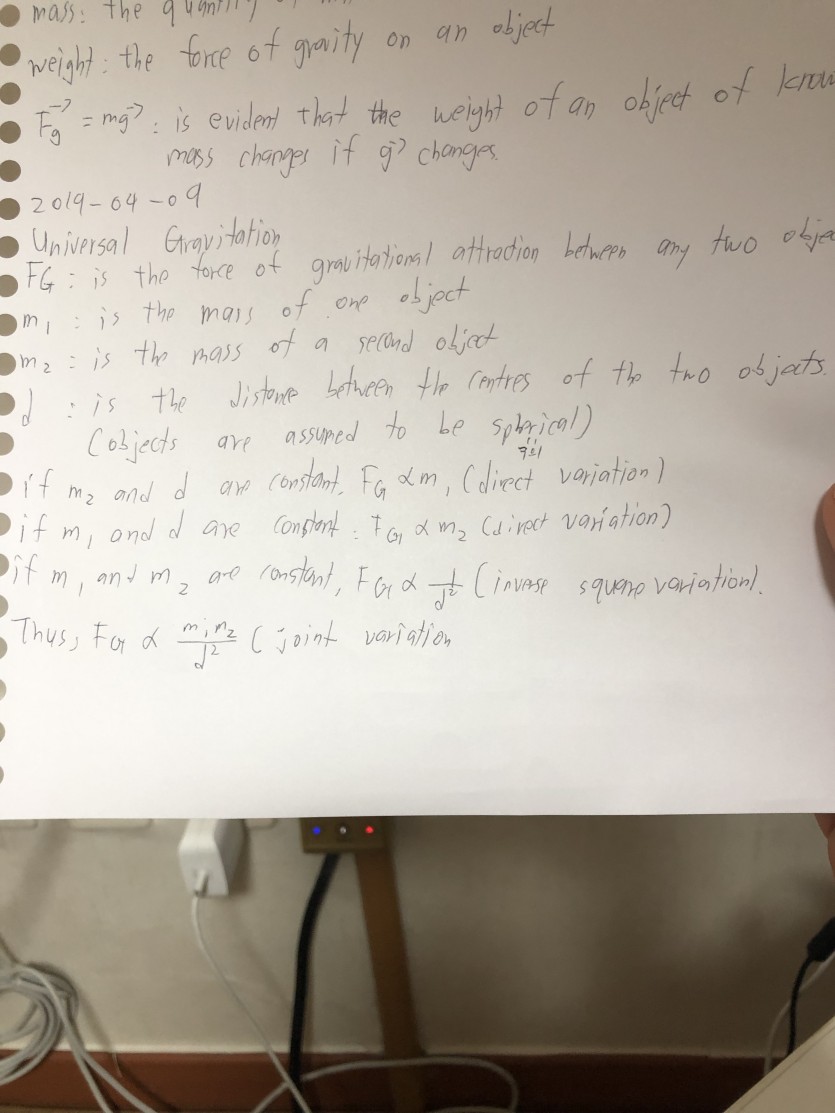 mass: the quantity of
weight: the force of gravity on an object
F⃗g = mg⃗ : is evident that the weight of an object of know
mass changes if g⃗ changes.
2019-04-09
Universal Gravitation
FG : is the force of gravitational attraction between any two objec
m₁ : is the mass of one object
m₂ : is the mass of a second object
d : is the distance between the centres of the two objects.
(objects are assumed to be spherical)
if m₂ and d are constant, FG ∝ m₁ (direct variation)
if m₁ and d are constant : FG ∝ m₂ (direct variation)
if m₁ and m₂ are constant, FG ∝ 1/d² (inverse square variation).
Thus, FG ∝ m₁m₂/d² (joint variation